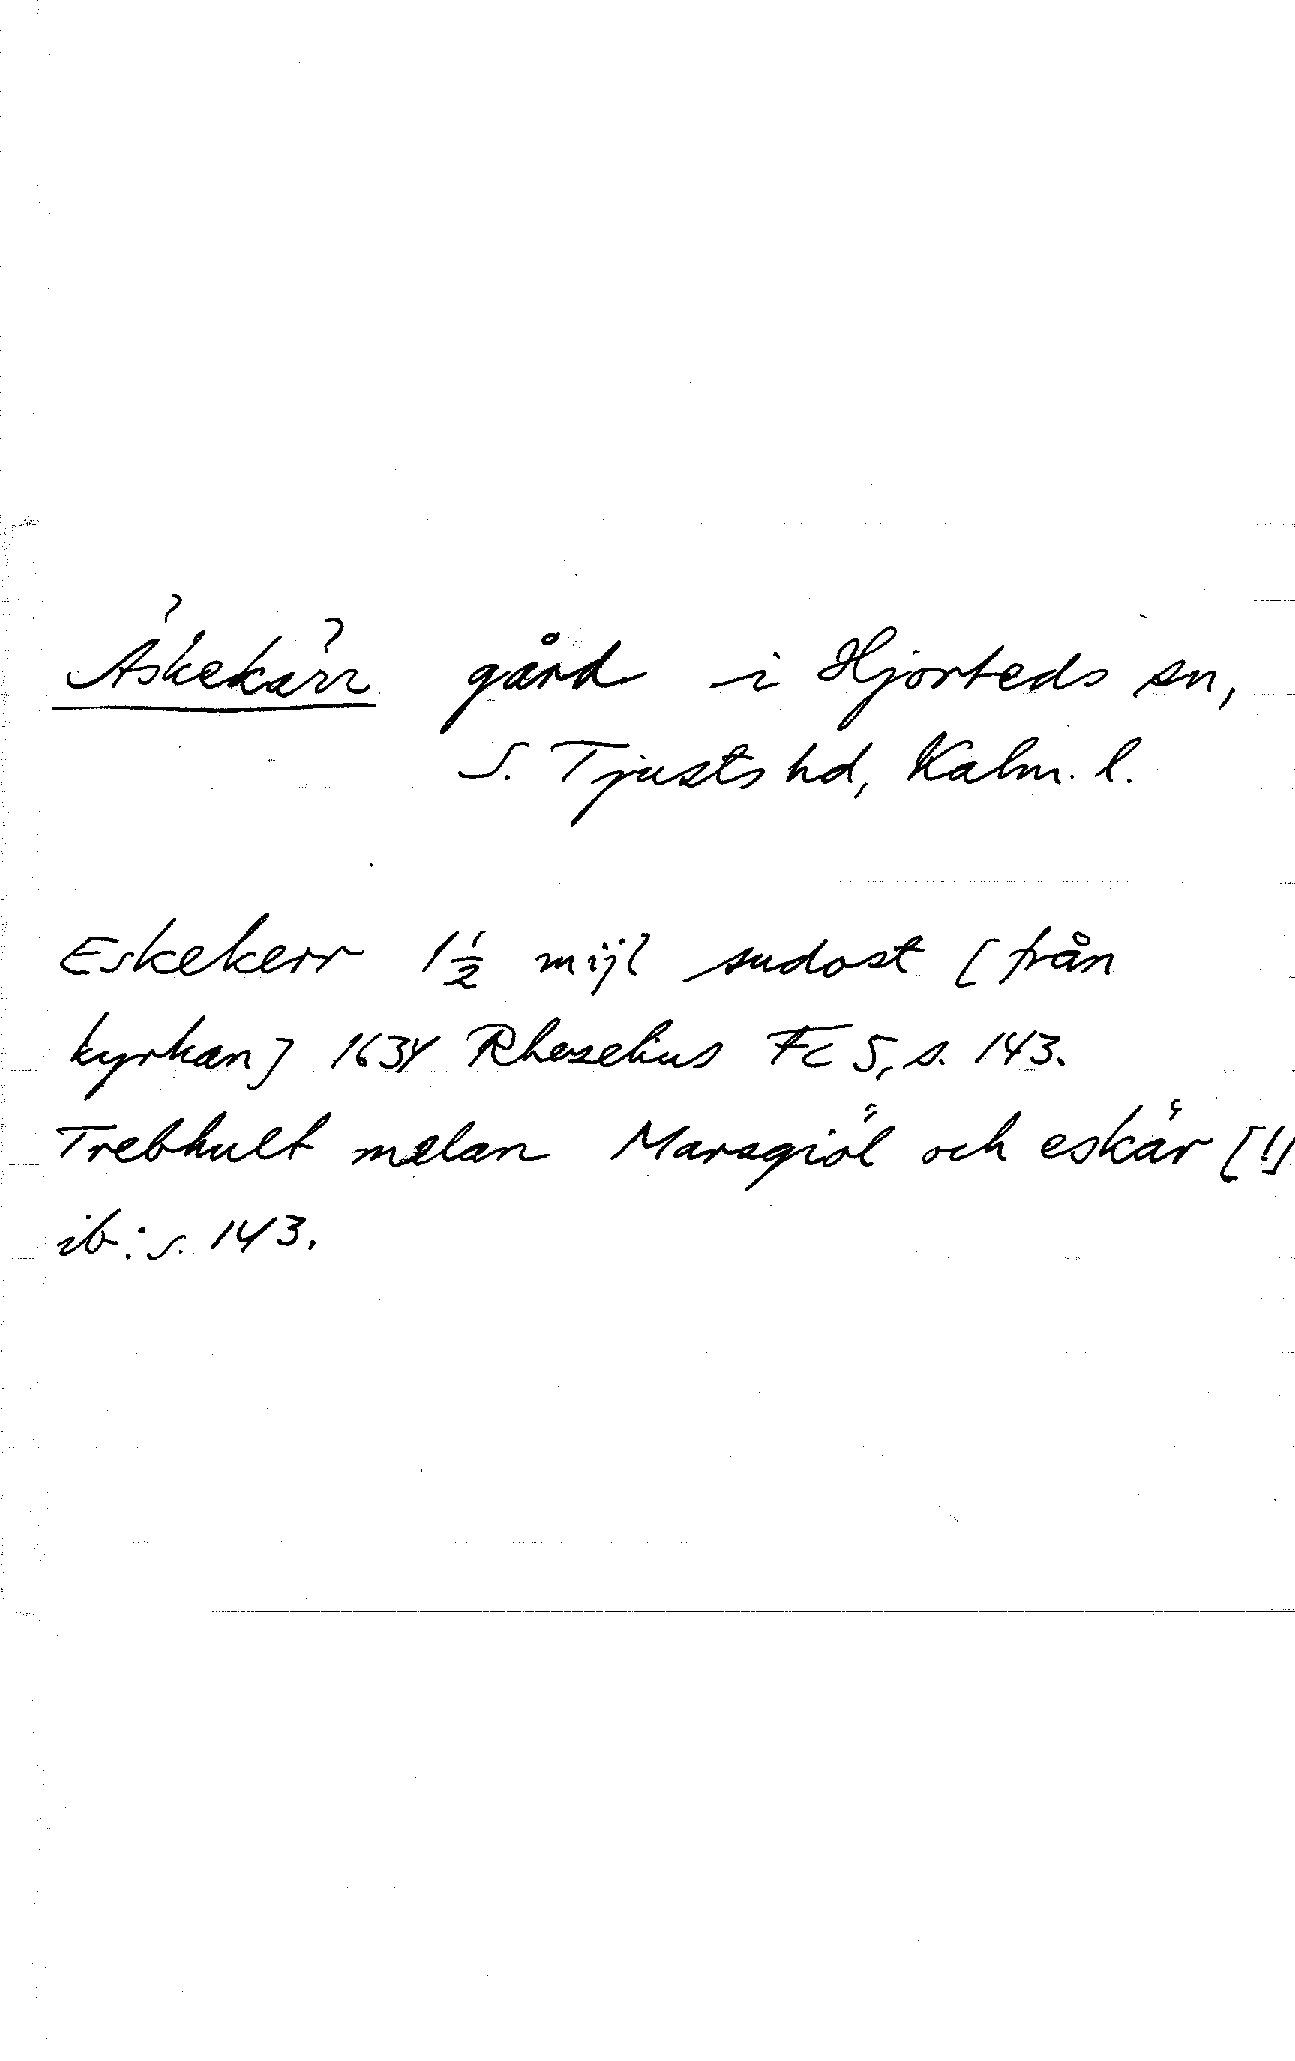 Äskekärr gård i Hjorteds sn,
S. Tjusts hd, Kalm. l.
Eskekerr 1½ mijl sudost [från
kyrkan] 1634 Rhezelius Fc 5, s. 143.
Trebhult melan Maragiöl och eskär [!]
ib: s. 143.